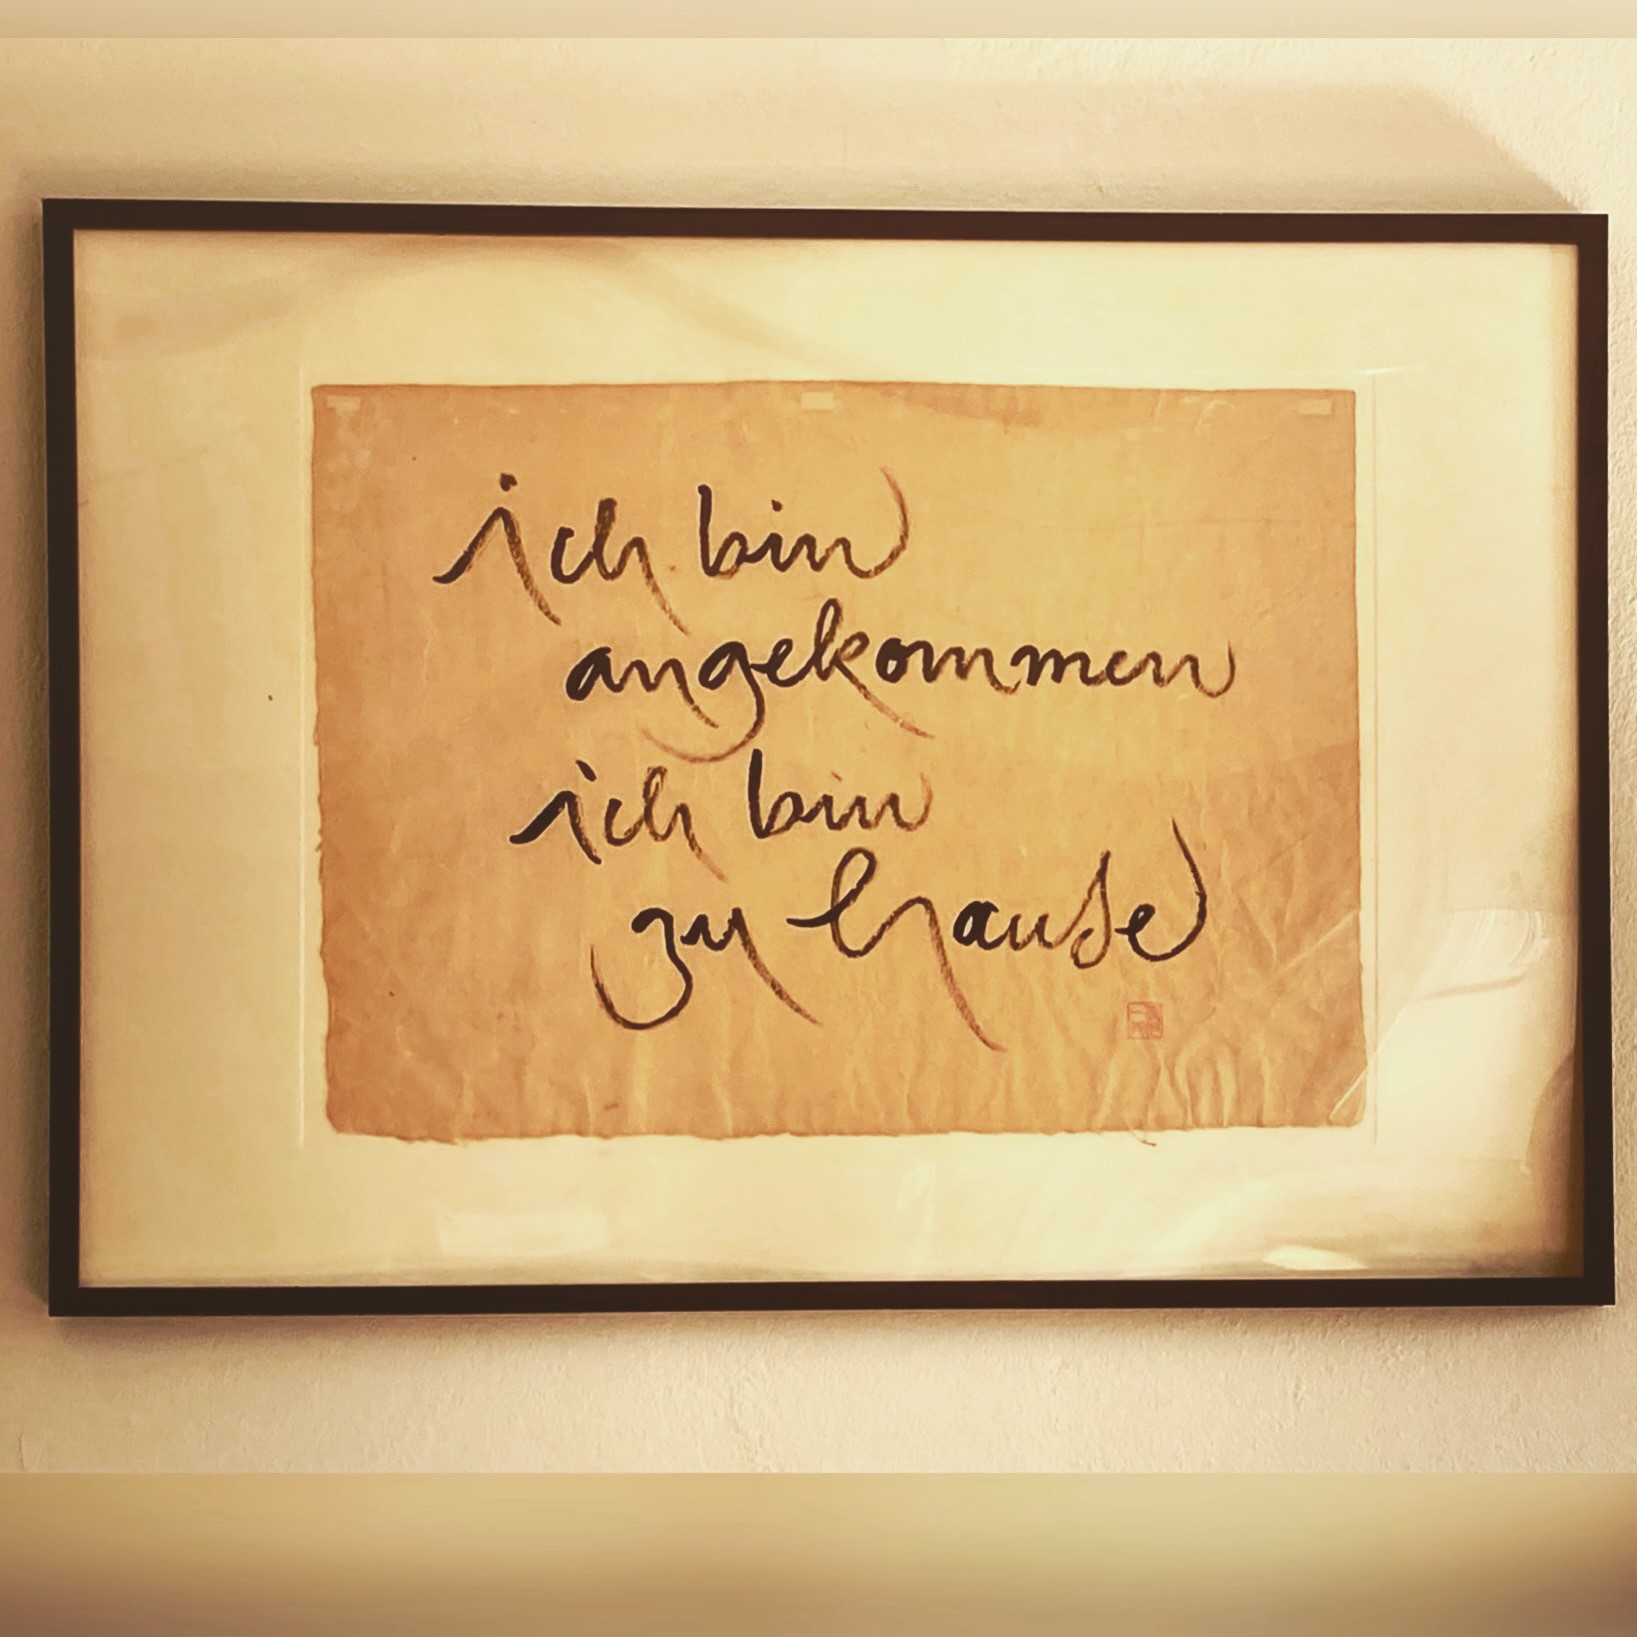 ich bin
angekommen
ich bin
zu hause